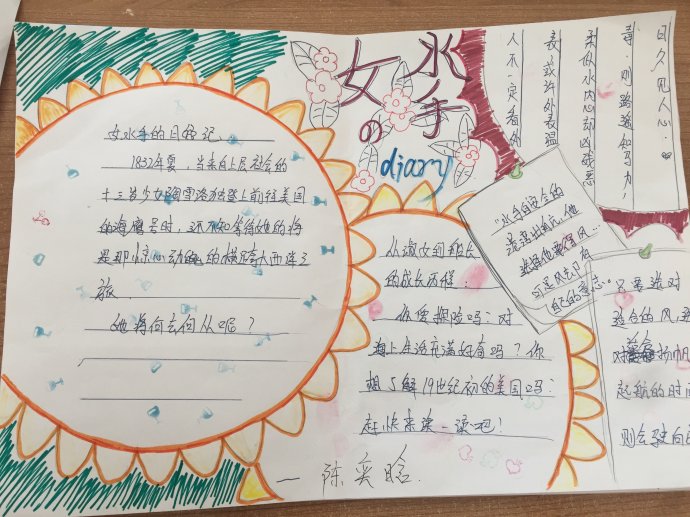 女水手の
diary
女水手的日记
1832年夏,当来自上层社会的
十三岁少女雪洛独登上前往美国
的海鹰号时,还不知等待她的将
是那惊心动魄的横穿大西洋之
旅.
她将何去何从呢?
从淑女到船长
的成长历程:
你爱探险吗?对
海上生活充满好奇吗?你
想了解19世纪初的美国吗?
赶快来读一读吧!
一陈奕晗.
"水手自安全的
港湾出航,他
选择他要的风…
可是风却有
自己的意志。"
只要选对
适合的风,
对 扬帆
起航的时
则会驶向
日久见人心.
毒.则路遥知马力,
柔似水内心却凶残恶
表或许外表温
人不一定看外